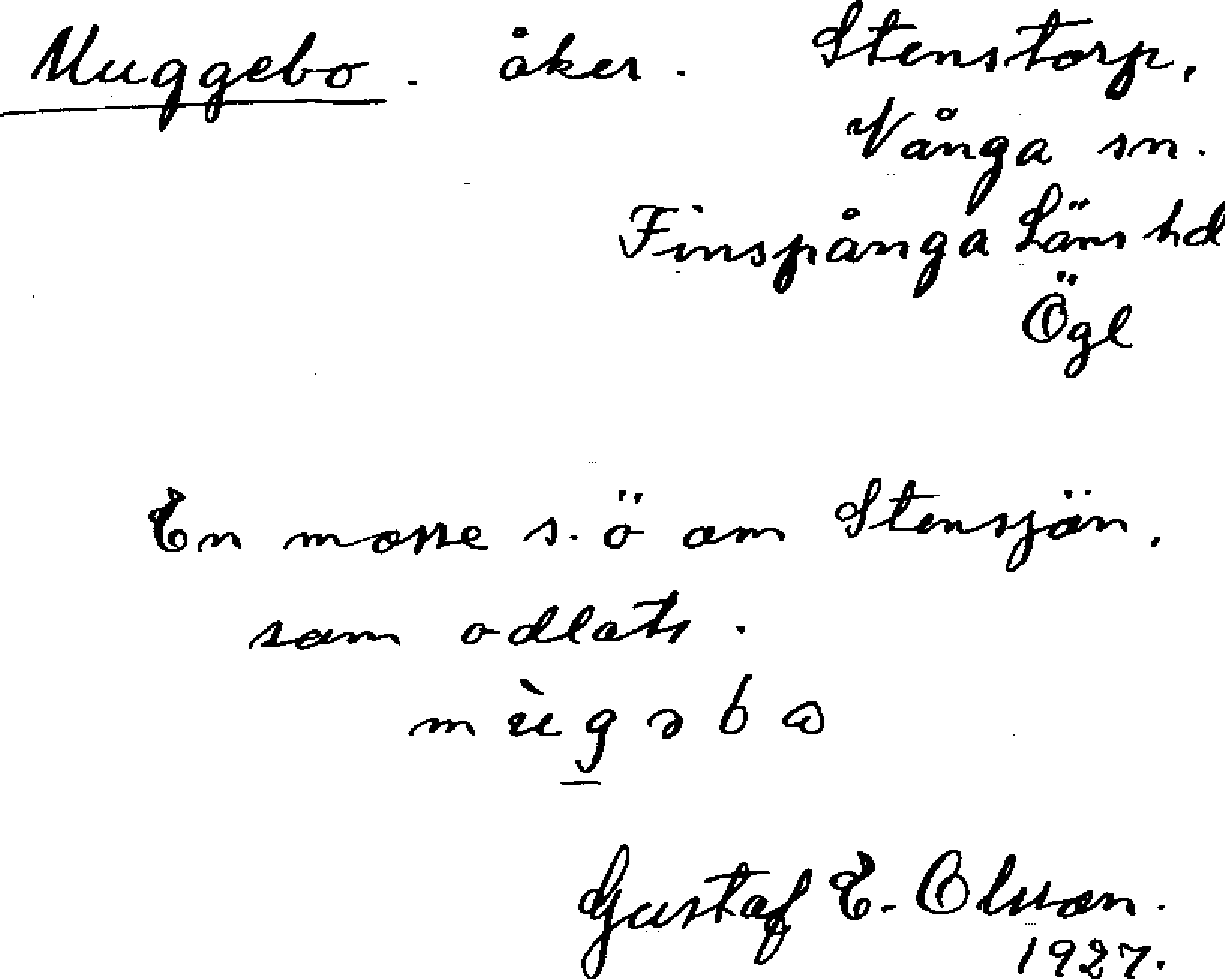 Muggebo. åker. Stenstorp,
Vånga sn.
Finspånga Läns hd
Ögl
En mosse s.ö om Stensjön,
som odlats.
mùgəbɷ
Gustaf E. Olsson.
1927.